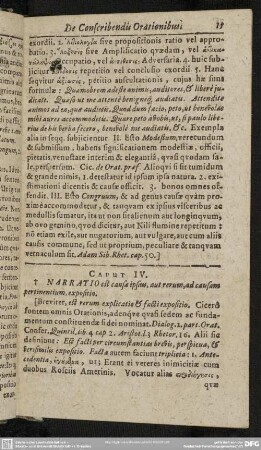 De Conscribendis Orationibus 15
exordii. 2. sive propositionis ratio vel appro-
batio. 3. Αὔξησις sive Amplificatio quædam, vel
occupatio, vel Adversaria. 4. huic sub-
jicitur repetitio vel conclusio exordii 5. Hanc
sequitur petitio auscultationis, cujus hæ sunt
formulæ: Quamobrem adeste animis, auditores, & liberè ju-
dicate. Quæso ut me attentè benigneq́; audiatis. Attendite
animos ad ea, quæ audistis. Quod dum facio, peto, ut benevolos
mihi aures accommodetis. Quare peto abs vobis, ut, si paulo libe-
rius de his verba fecero, benevolè me audiatis, &c. Exempla
alia in seqq. subjicientur II. Esto Modestum, verecundum
& submissum, habens significationem modestiæ, officii,
pietatis, venustate interim & elegantiâ, quod quodam sa-
le perspersum. Cic. de Orat. præf Alioqui si sit tumidum
& grande nimis, 1. detestatur id ipsum ipsa natura. 2. ex-
istimationi dicentis & causæ officit. 3. bonos omnes of-
fendit. III. Esto Congruum, & ad genus causæ quàm pro-
ximè accommodetur, & tanquam ex ipsius visceribus ac
medullis sumatur, ita ut non sit alienum aut longinquum,
ab ovo gemino, quod dicitur, aut Nili flumine repetitum:
nô etiam exile, aut negatorium, aut vulgare, aut cum aliis
causis commune, sed ut proprium, peculiare & tanquam
vernaculum sit. Adam Sib. Rhet. cap. 50.]
CAPUT IV.
NARRATIO est causa ipsius, aut rerum, ad causam
pertinentium, expositio.
[Breviter, est rerum explicatio & facti expositio. Ciceró
fontem omnis Orationis, adeoque quasi sedem ac funda-
mentum constituendæ fidei nominat. Dialog. 2. part. Orat.
Confer. Quintil. lib. 4 cap 2. Aristot. l. 3 Rhetor. 16. Alii sic
definiunt: Est facti per circumstantias brevis, perspicua, &
verisimilis expositio. Facta autem faciunt triplicia: 1. Ante-
cedentia, ut: Erant ei veteres inimicitiæ cum
duobus Rosciis Amerinis. Vocatur aliàs
quæ